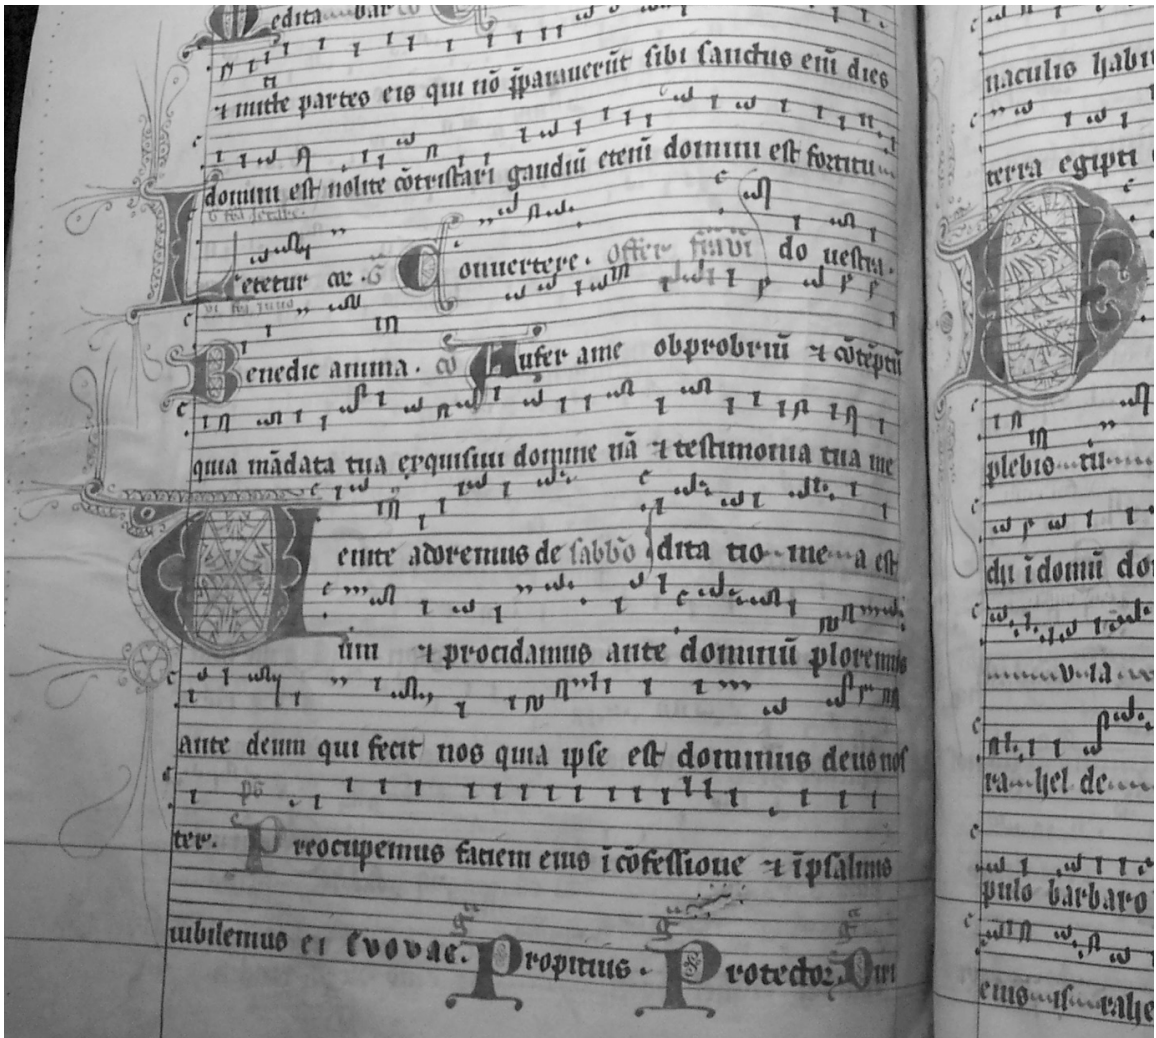 edita bar
⁊ mitte partes eis qui nō p̄parauerūt sibi sanctus eiū dies
domini est nolite cōtristari gaudiū eteniū domini est fortitu
Letetur cor. G̃ Conuertere. Offer. do uestra.
Benedic anima. cō Aufer ame obprobriū ⁊ cōteptū
quia mādata tua exquisiui domine nā ⁊ testimonia tua me
Uenite adoremus de sabb̄o dita tio me a est
um ⁊ procidamus ante dominū ploremus
ante deum qui fecit nos quia ipse est dominus deus nos
ps
ter. Preocupemus faciem eius ī cōfessione ⁊ ī psalmis
iubilemus ei Evovae. Propitius. Protector.
naculis habi
terra egipti
plebis tu
dn̄ ī domū do
ra hel de
pulo barbaro
eius rahe